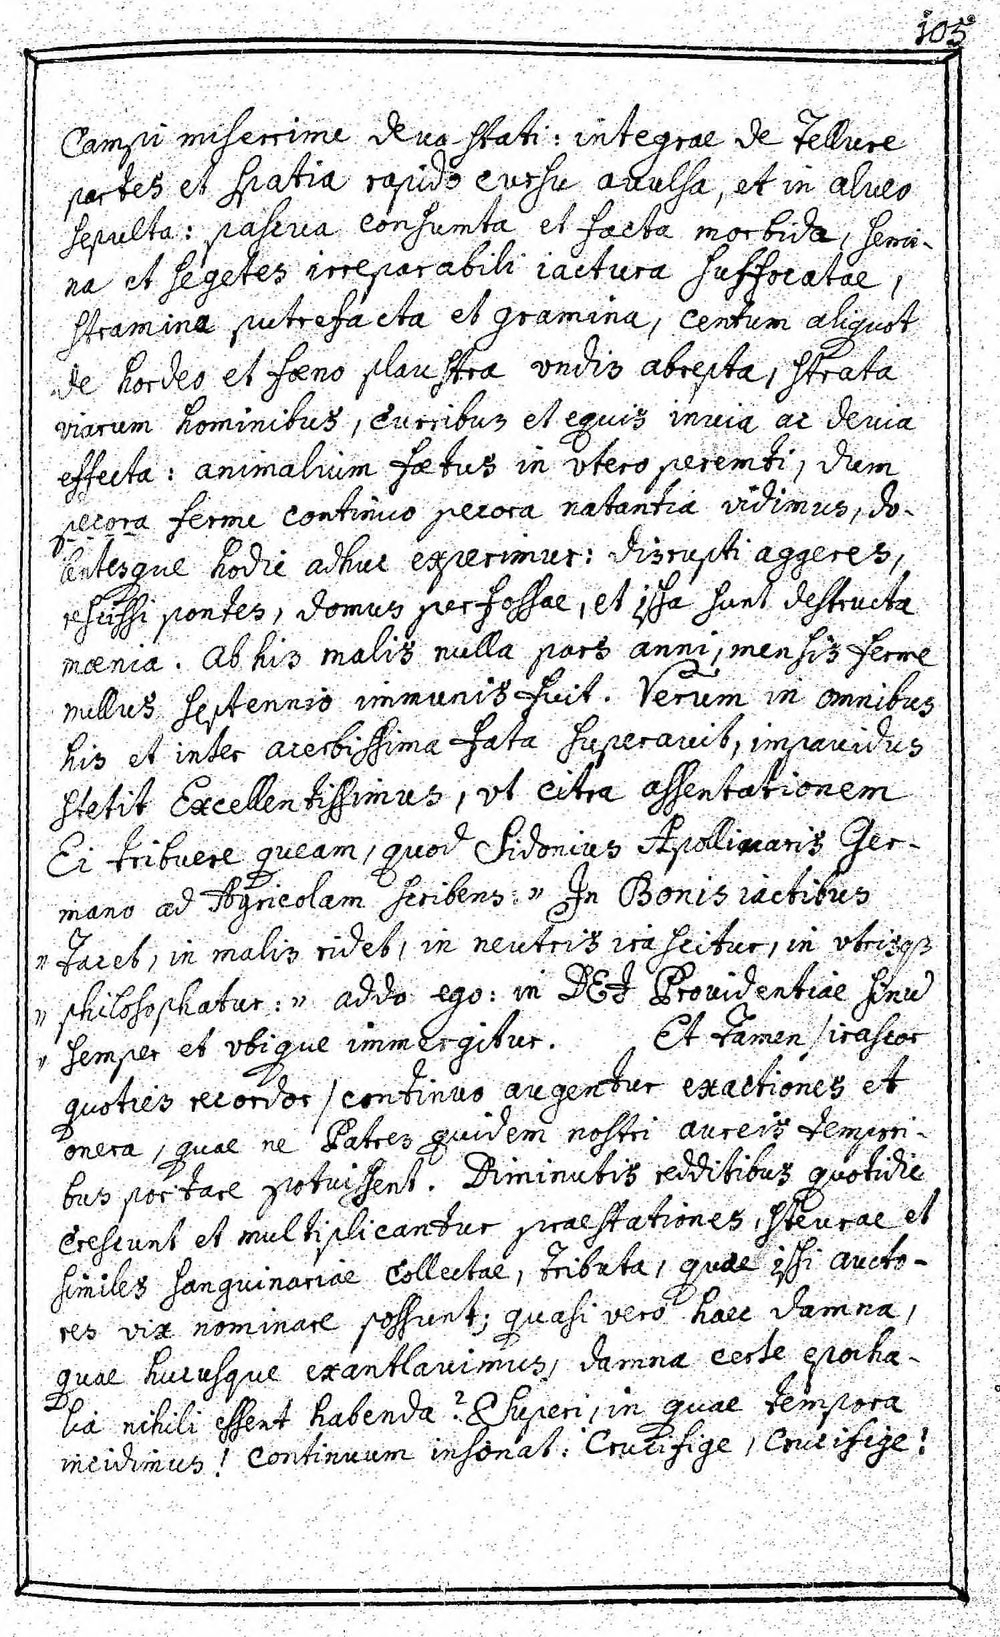 105
Campi miserrime devastati: integrae de Tellure
partes et spatia rapido cursu avulsa, et in alveo
sepulta: pascua consumta et facta morbida, semi-
na et segetes irreparabili iactura suffocatae,
stramina putrefacta et gramina, centum aliquot
de hordeo et foeno plaustra vndis abrepta, strata
viarum hominibus, curribus et equis inuia ac deuia
effecta: animalium foetus in vtero peremti, dum
pecora ferme continuo pecora natantia vidimus, do-
lentesque hodie adhuc experimur: disrupti aggeres,
rescissi pontes, domus perfossae, et ipsa sunt destructa
moenia. Ab his malis nulla pars anni, mensis ferme
nullus septennio immunis fuit. Verum in omnibus
his et inter acerbissima fata superauit, impauidus
stetit Excellentissimus, vt citra assentationem
Ei tribuere queam, quod Sidonius Apollinaris Ger-
mano ad Agricolam scribens: " In Bonis iactibus
" Tacet, in malis ridet, in neutris irascitur, in vtrisqз
" philosophatur: " addo ego: in DEI Prouidentiae sinu
" semper et vbique immergitur. Et tamen /irascor
quoties recordor/ continuo augentur exactiones et
onera, quae ne Patres quidem nostri aureis tempori-
bus portare potuissent. Diminutis redditibus quotidie
crescunt et multiplicantur praestationes, steurae et
similes sanguinariae collectae, tributa, quae ipsi aucto-
res vix nominare possunt; quasi vero haec damna,
quae hucusque exantlauimus, damna certe epocha-
lia nihili essent habenda? O Superi, in quae tempora
incidimus! continuum insonat: Crucifige, Crucifige!